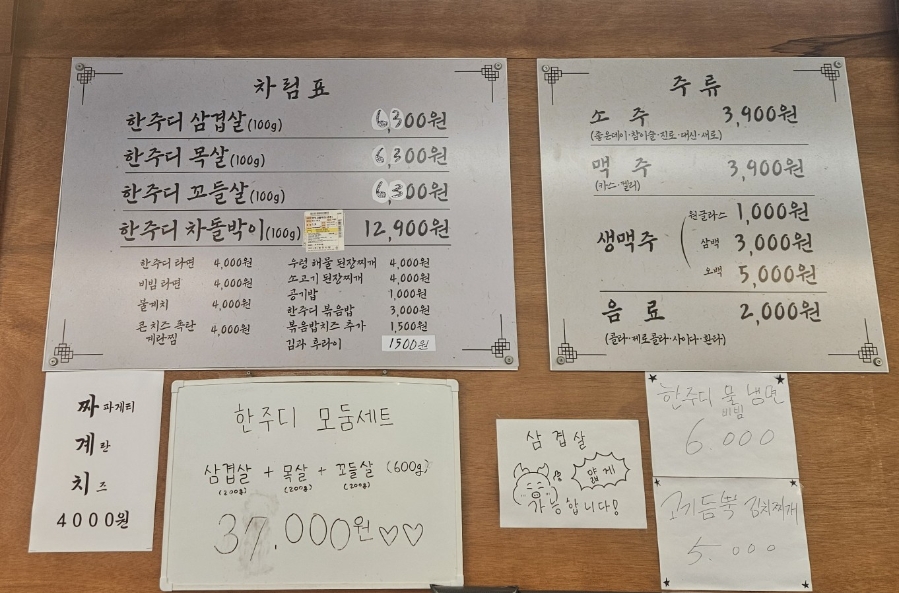 차림표
한주디 삼겹살(100g) 6,300원
한주디 목살(100g) 6,300원
한주디 꼬들살(100g) 6,300원
한주디 차돌박이(100g) 12,900원
한주디 라면 4,000원
비빔 라면 4,000원
불계치 4,000원
콘치즈 폭탄 계란찜 4,000원
우렁 해물 된장찌개 4,000원
소고기 된장찌개 4,000원
공기밥 1,000원
한주디 볶음밥 3,000원
볶음밥치즈 추가 1,500원
김과 후라이 1500원
주류
소주 3,900원
(좋은데이·참이슬·진로·대선·새로)
맥주 3,900원
(카스·켈리)
생맥주
원글라스 1,000원
삼백 3,000원
오백 5,000원
음료 2,000원
(콜라·제로콜라·사이다·환타)
짜파게티
계란
치즈
4000원
한주디 모둠세트
삼겹살 + 목살 + 꼬들살 (600g)
(200g) (200g) (200g)
37.000원♡♡
삼겹살
얇게
가능합니다!
한주디 물 냉면
비빔
6.000
고기듬뿍 김치찌개
5.000